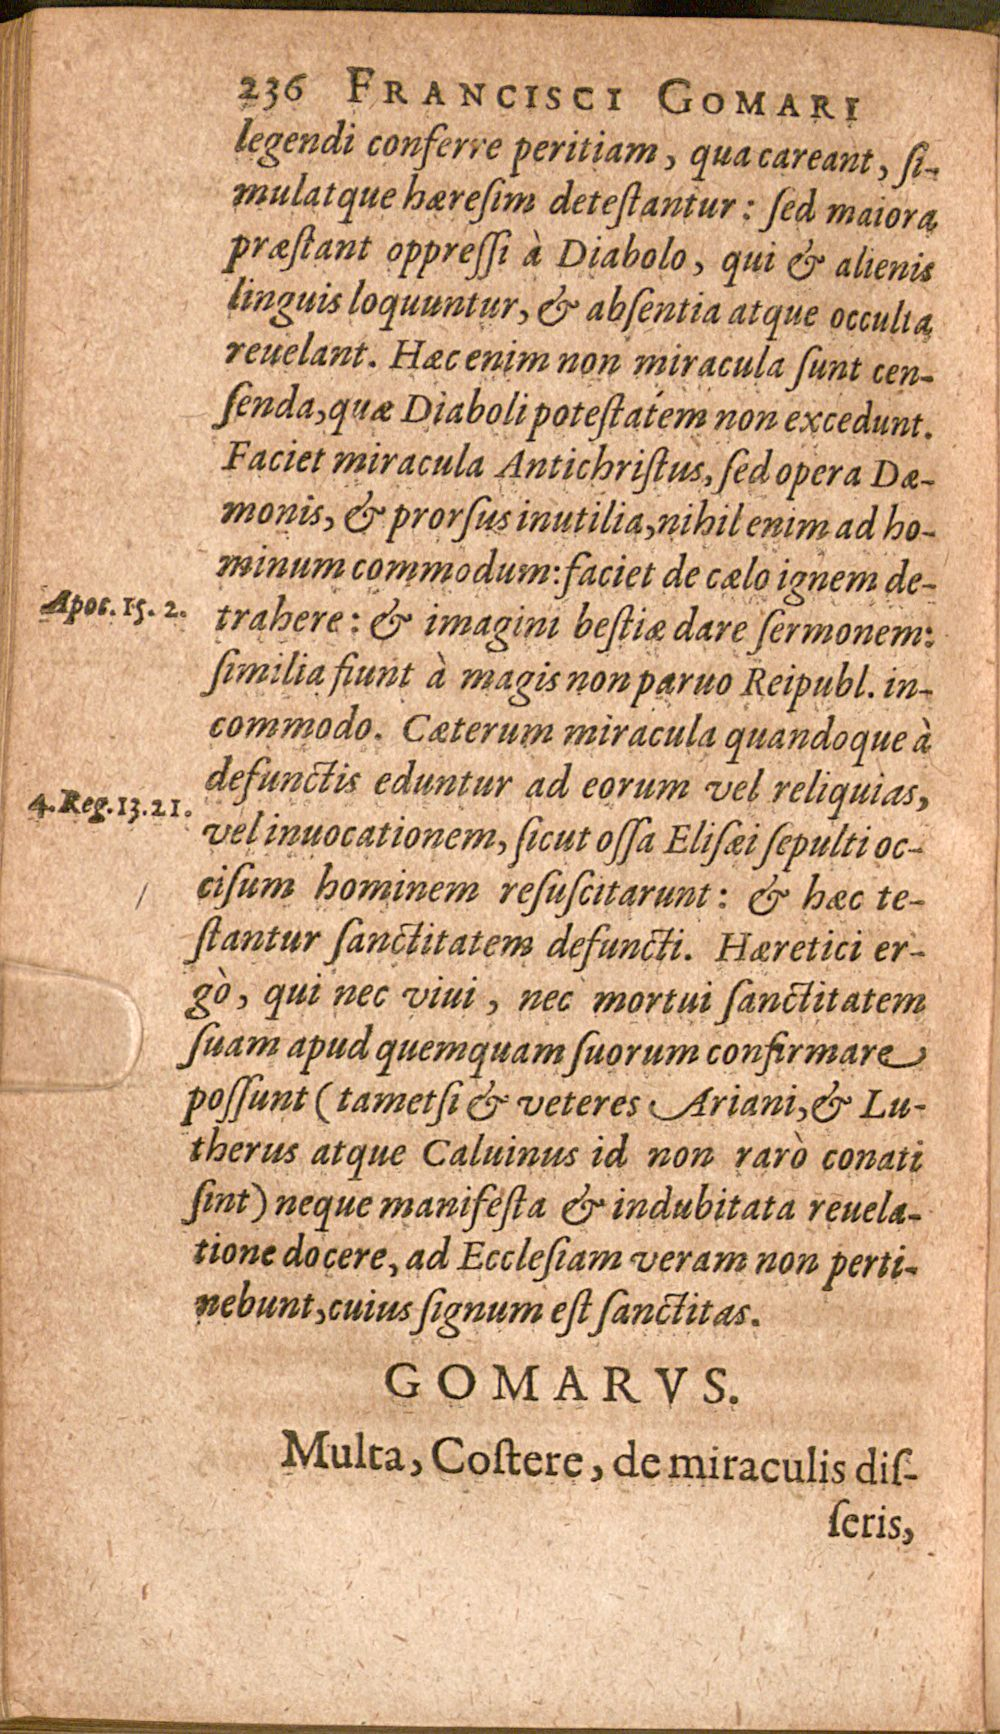 236 FRANCISCI GOMARI
legendi conferre peritiam, qua careant, ſi-
mulatque hæreſim deteſtantur: ſed maiora
præſtant oppreſſi à Diabolo, qui & alienis
linguis loquuntur, & abſentia atque occulta
reuelant. Hæc enim non miracula ſunt cen-
ſenda, quæ Diaboli poteſtatem non excedunt.
Faciet miracula Antichriſtus, ſed opera Dæ-
monis, & prorſus inutilia, nihil enim ad ho-
minum commodum: faciet de cælo ignem de-
Apoc. 15. 2.
trahere: & imagini beſtiæ dare ſermonem:
ſimilia fiunt à magis non paruo Reipubl. in-
commodo. Cæterum miracula quandoque à
defunctis eduntur ad eorum vel reliquias,
4. Reg. 13. 21.
vel inuocationem, ſicut oſſa Eliſæi ſepulti oc-
ciſum hominem reſuſcitarunt: & hæc te-
ſtantur ſanctitatem defuncti. Hæretici er-
gò, qui nec viui, nec mortui ſanctitatem
ſuam apud quemquam ſuorum confirmare
poſſunt (tametſi & veteres Ariani, & Lu-
therus atque Caluinus id non rarò conati
ſint) neque manifeſta & indubitata reuela-
tione docere, ad Eccleſiam veram non perti-
nebunt, cuius ſignum eſt ſanctitas.
GOMARVS.
Multa, Coſtere, de miraculis diſ-
ſeris,